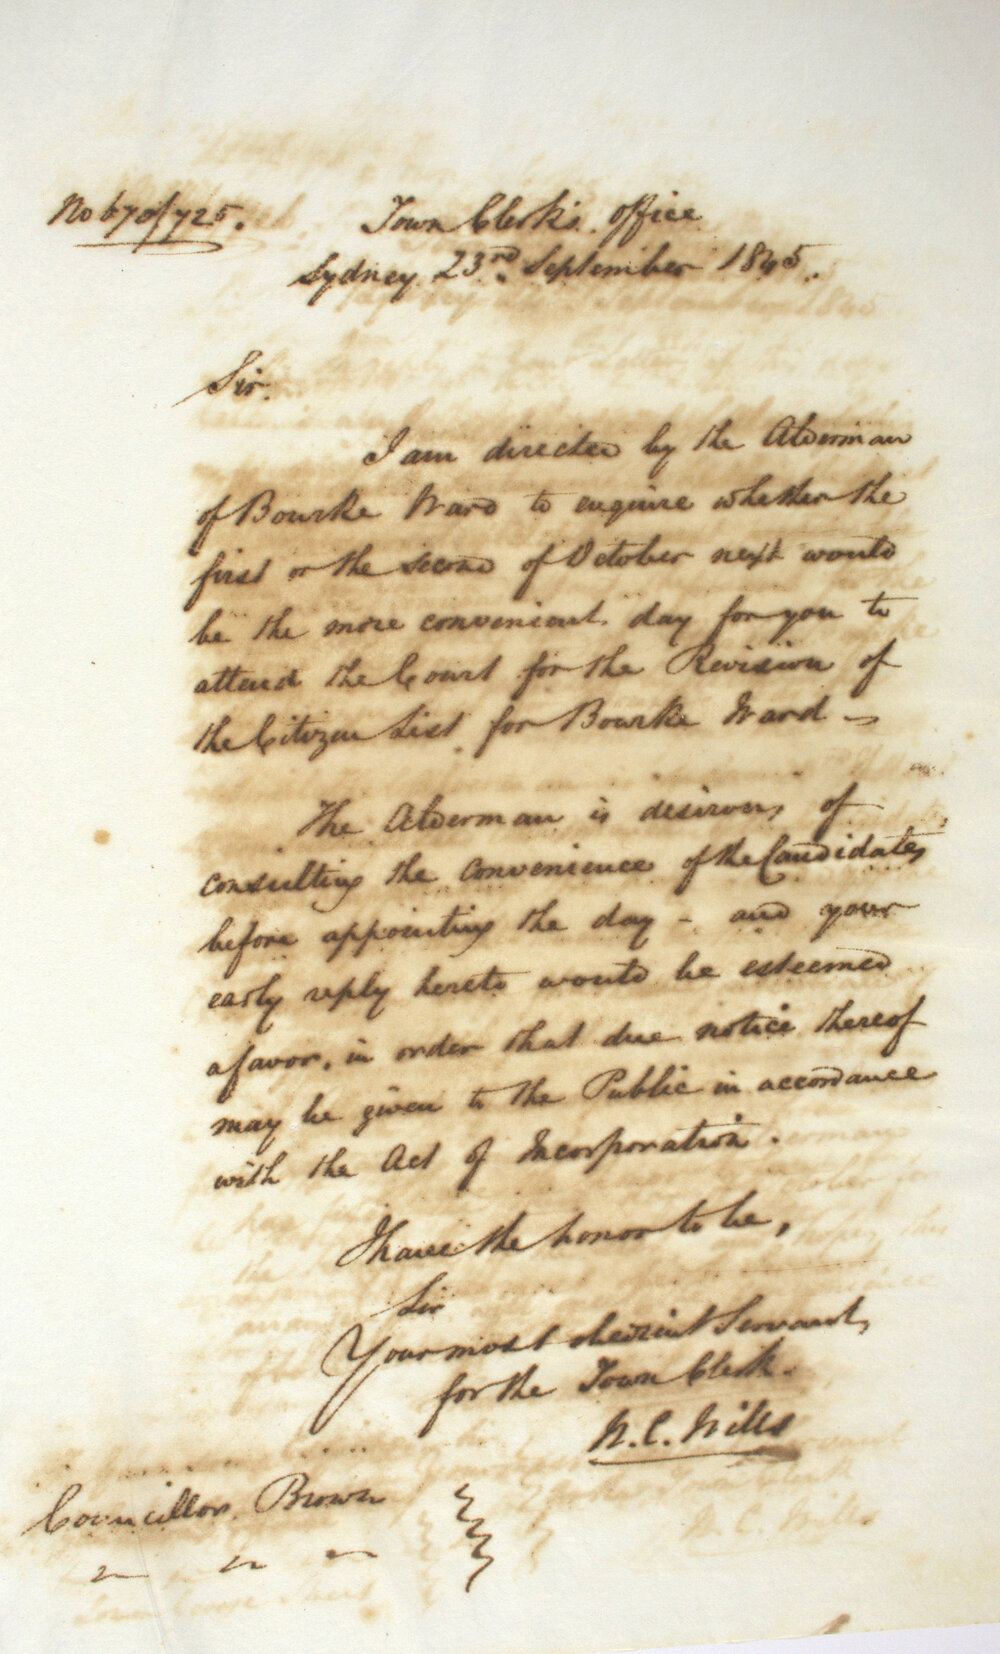 No 67 of 725.
Town Clerk's Office
Sydney 23rd September 1845.
Sir.
I am directed by the Alderman
of Bourke Ward to enquire whether the
first or the second of October next would
be the more convenient day for you to
attend the Court for the Revision of
the Citizen List for Bourke Ward
The Alderman is desirous of
consulting the convenience of the Candidates
before appointing the day - and your
early reply hereto would be esteemed
a favor, in order that due notice thereof
may be given to the Public in accordance
with the Act of Incorporation.
I have the honor to be,
Sir
Your most obedient Servant,
for the Town Clerk.
W. C. Wills
Councillor Brown